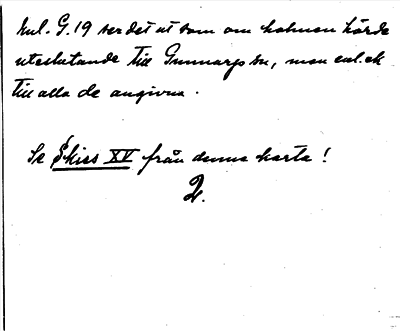 Enl. G. 19 ser det ut som om holmen hörde
uteslutande till Gunnarps by, men enl. ek
till alla de angivna.
Se Skiss XV från denna karta!
2.